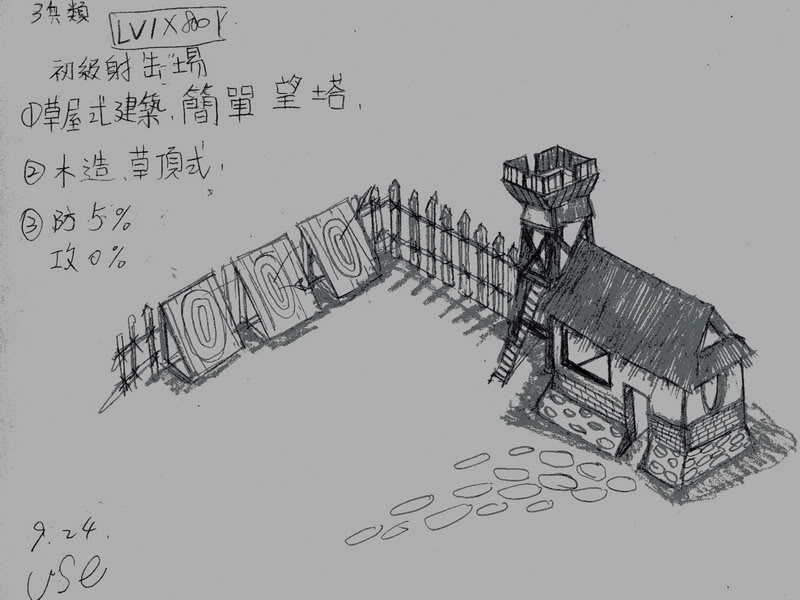 弓兵類
LV1X800Y
初級射出場
①草屋式建築.簡單望塔.
②木造、草頂式.
③防5%
攻0%
9.24.
use